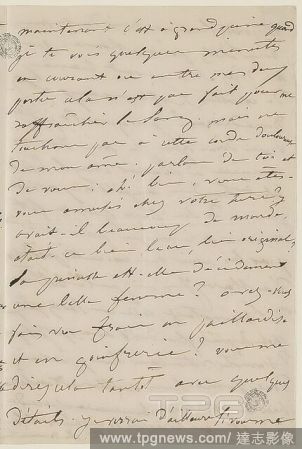 maintenant c'est à grand peine quand
je te vois quelques minutes
en courant ou entre mes deux
portes cela n'est pas fait pour me
rafraîchir le sang. mais ne
touchons pas à cette corde douloureuse
de mon âme. parlons de toi et
de vous. eh! bien, vous êtes-
vous amusés chez votre
avait-il beaucoup de monde,
était-ce bien beau, bien original,
la est-elle décidément
une belle femme? avez-vous
fait vos frais en paillardise
et en goinfrerie? vous me
direz cela tantôt avec quelques
détails. je verrai d'ailleurs
TPG
www.tpgnews.com/達志影像